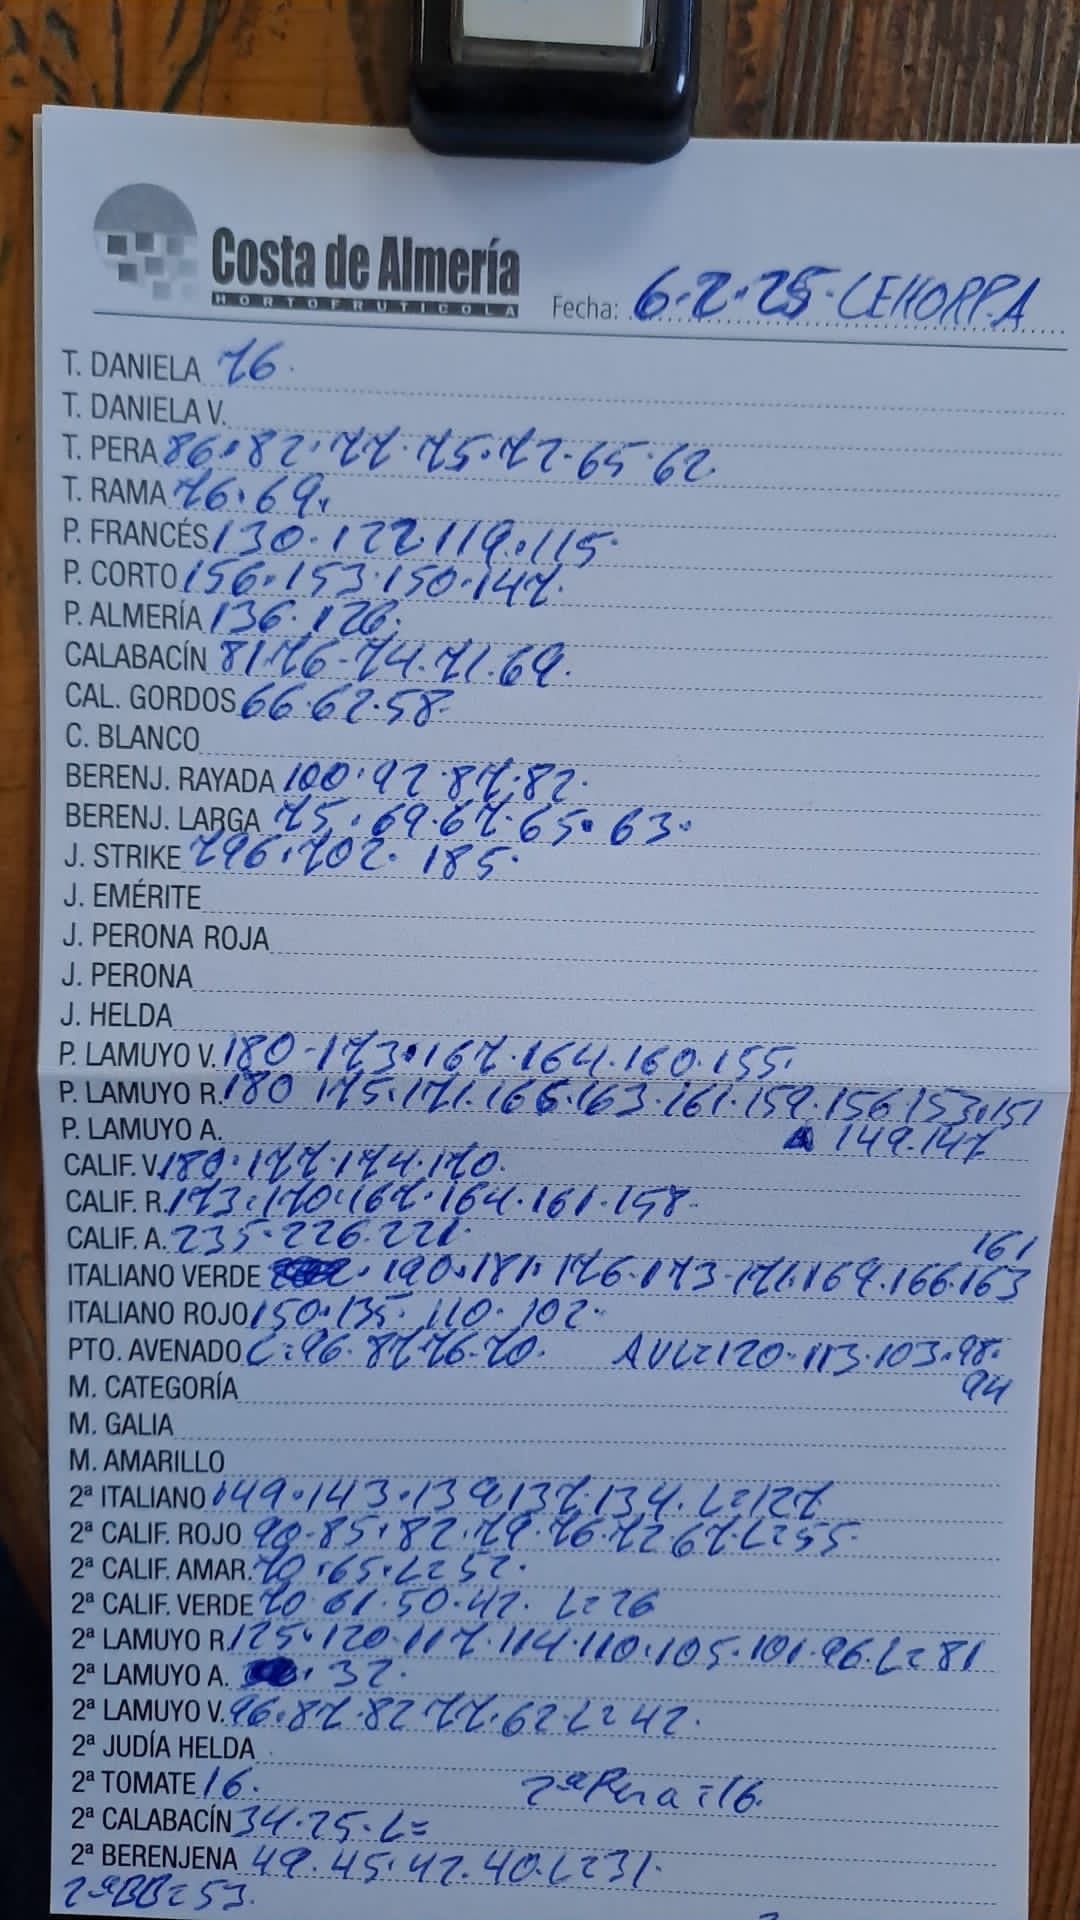 Costa de Almería
HORTOFRUTICOLA
Fecha: 6·2·25·CEHORPA
T. DANIELA 76·
T. DANIELA V.
T. PERA 86·82·77·75·72·65·62
T. RAMA 76·69·
P. FRANCÉS 130·122·119·115·
P. CORTO 156·153·150·147·
P. ALMERÍA 136·126·
CALABACÍN 81·76-74·71·69·
CAL. GORDOS 66·62·58·
C. BLANCO
BERENJ. RAYADA 100·92·87·82·
BERENJ. LARGA 75·69·67·65·63·
J. STRIKE 185·
J. EMÉRITE
J. PERONA ROJA
J. PERONA
J. HELDA
P. LAMUYO V. 180-173·167·164·160·155·
P. LAMUYO R. 180 175·171·166·163·161·159·156 153·151
P. LAMUYO A. 149·147
CALIF. V. 180·177·174·170·
CALIF. R. 173·170·167·164·161·158·
CALIF. A. 235·226·221· 161
ITALIANO VERDE 190·181·176·173-171·169·166·163
ITALIANO ROJO 150·135·110·102·
PTO. AVENADO C=96·87·76·70· AVL=120·113·103·98·
M. CATEGORÍA 94
M. GALIA
M. AMARILLO
2ª ITALIANO 149·143·139·137·134·L=127
2ª CALIF. ROJO 90-85·82·79·76·72 67·L=55·
2ª CALIF. AMAR. 70·65·L=52·
2ª CALIF. VERDE 70 61·50·42· L=26
2ª LAMUYO R. 125·120·117·114·110·105·101·96·L=81
2ª LAMUYO A. 32·
2ª LAMUYO V. 96·87·82 77·62·L=42·
2ª JUDÍA HELDA
2ª TOMATE 16· 2ª Pera=16·
2ª CALABACÍN 34·25·L=
2ª BERENJENA 49·45·42·40·L=31·
2ªBB=53·